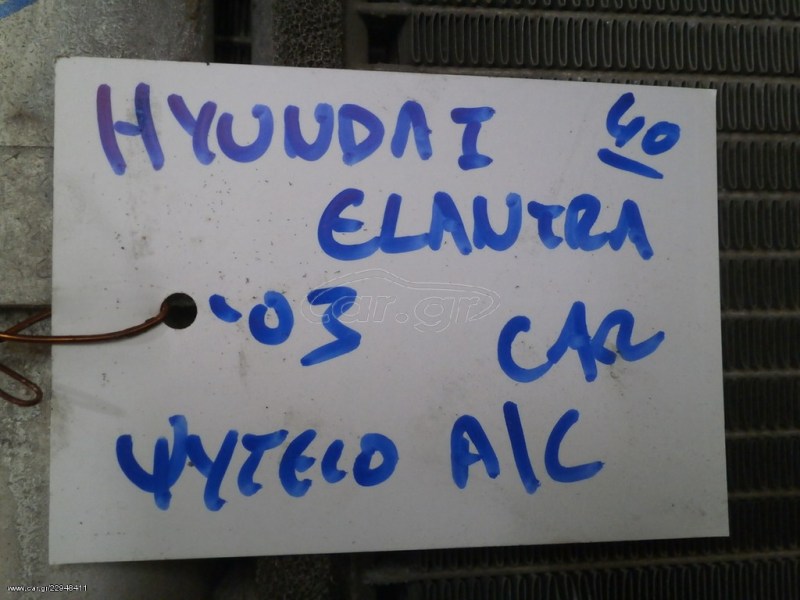 HYUNDAI 40
ELANTRA
'03 CAR
ΨΥΓΕΙΟ A/C
car.gr
www.car.gr/22948411